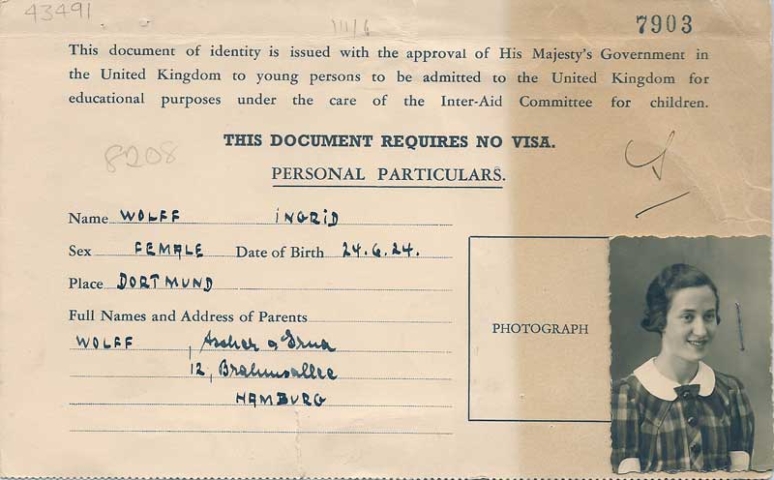 43491
7903
This document of identity is issued with the approval of His Majesty's Government in
the United Kingdom to young persons to be admitted to the United Kingdom for
educational purposes under the care of the Inter-Aid Committee for children.
THIS DOCUMENT REQUIRES NO VISA.
8208
PERSONAL PARTICULARS.
Name WOLFF INGRID
Sex FEMALE Date of Birth 24.6.24.
Place DORTMUND
Full Names and Address of Parents
WOLFF,
12, Brahmsallee
HAMBURG
PHOTOGRAPH